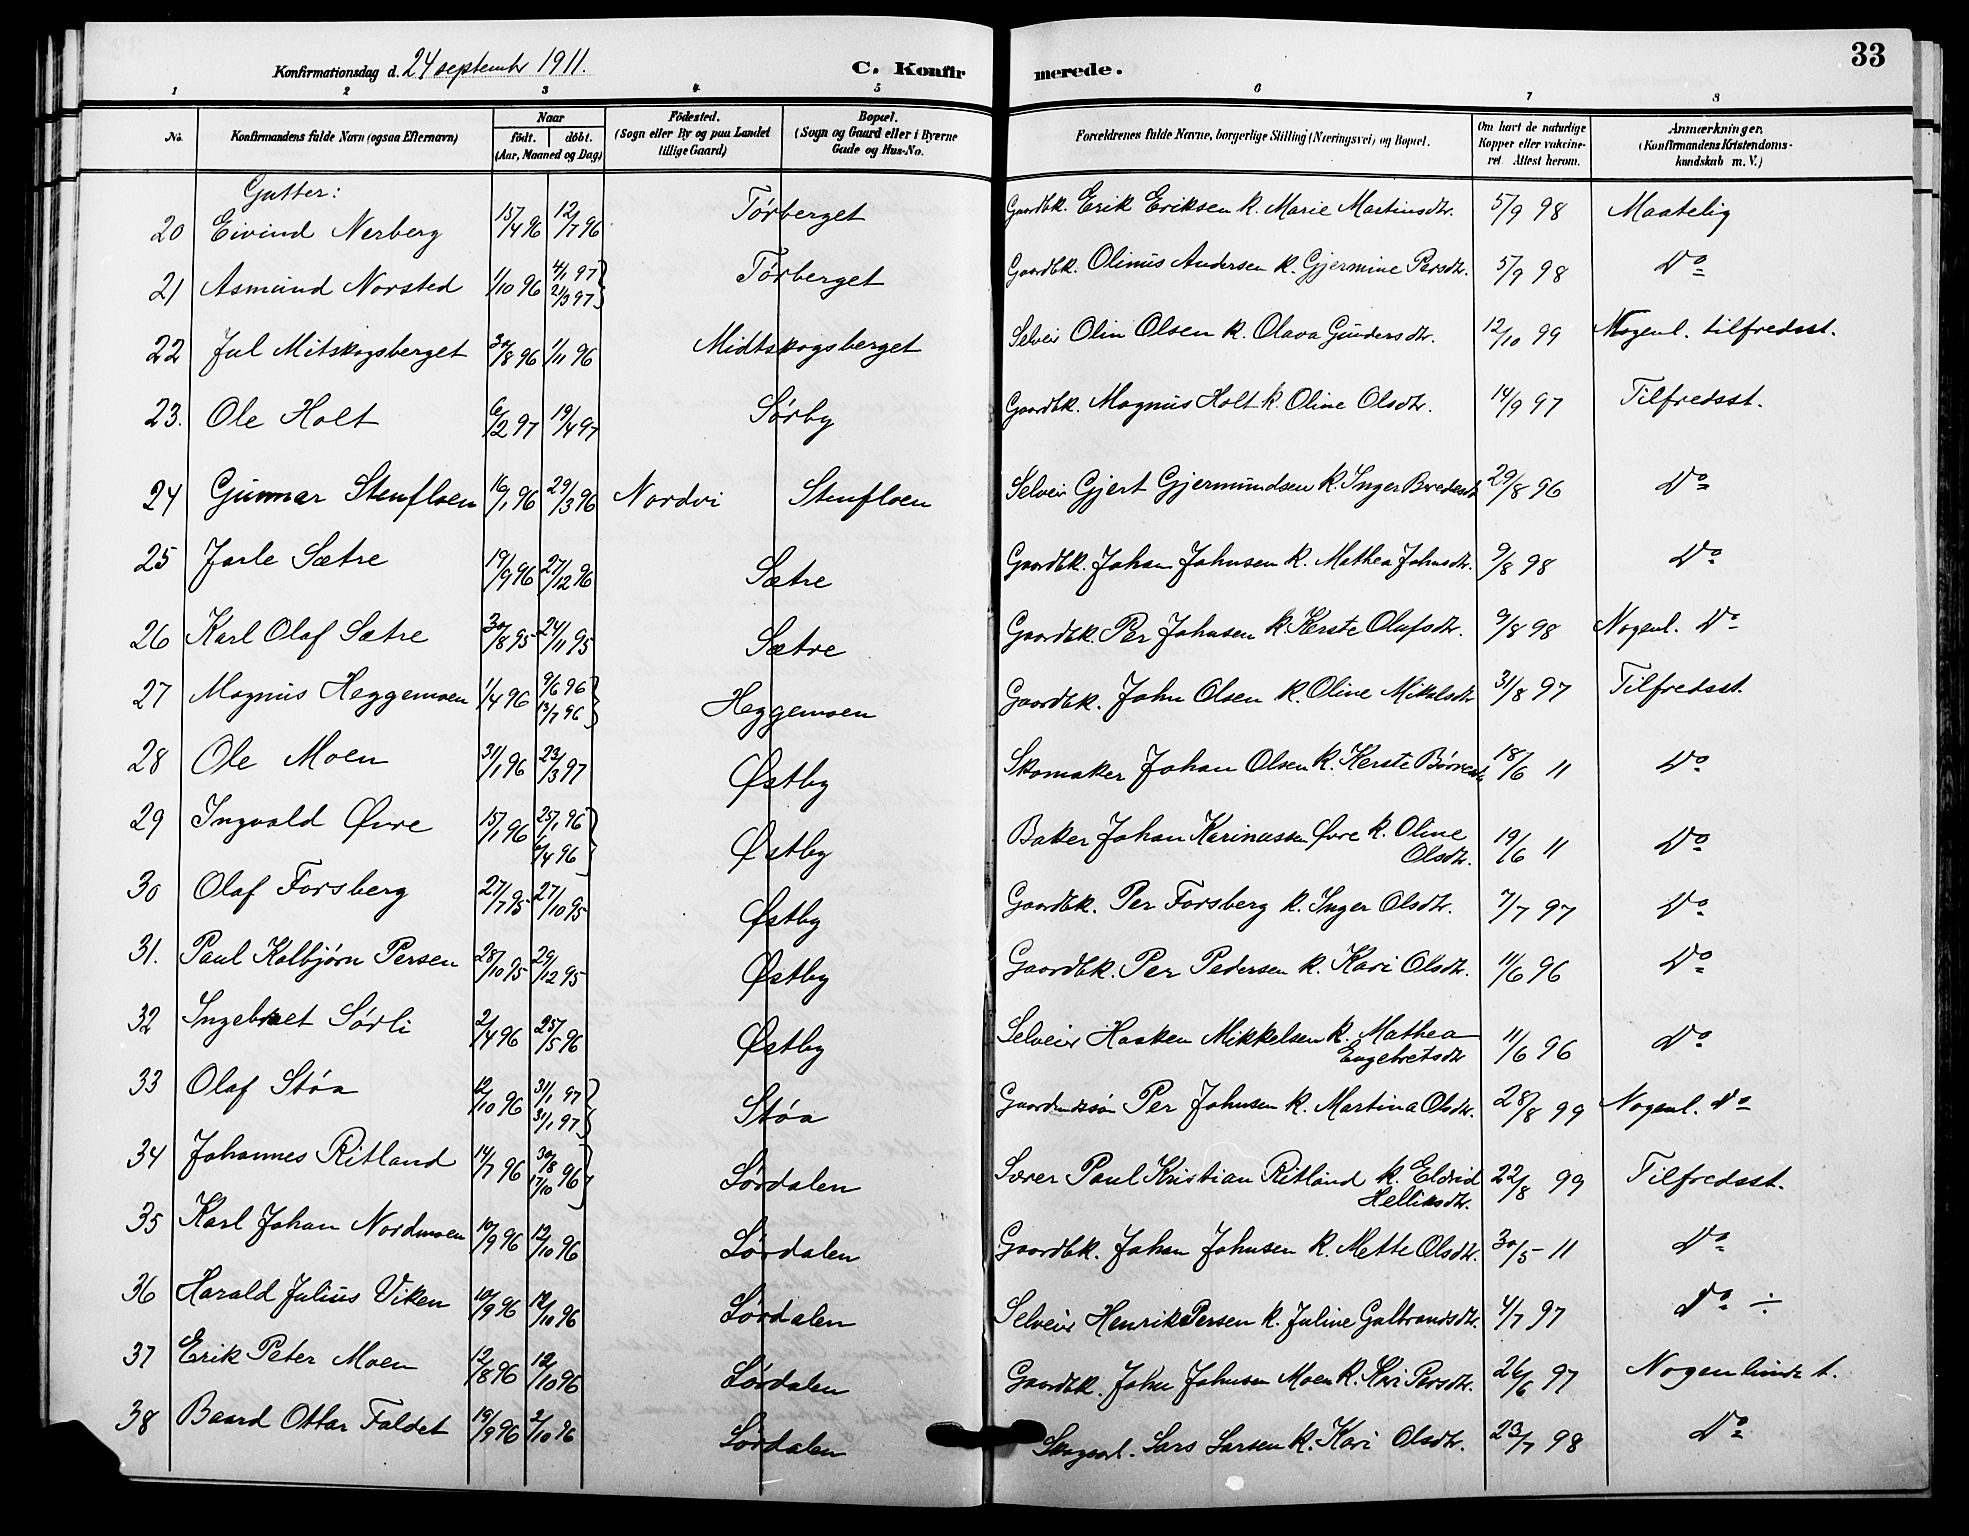 Konfirmationsdag d. 24 september 1911.
C. Konfirmerede.
33
1 2 3 4 5 6 7 8
No.
Konfirmandens fulde Navn (ogsaa Efternavn)
Naar
født. døbt.
(Aar, Maaned og Dag)
Fødested.
(Sogn eller By og paa Landet
tillige Gaard)
Bopæl.
(Sogn og Gaard eller i Byerne
Gade og Hus-No.
Forældrenes fulde Navne, borgerlige Stilling (Næringsvei) og Bopæl.
Om havt de naturlige
Kopper eller vakcine-
ret Attest herom.
Anmærkninger,
(Konfirmandens Kristendoms-
kundskab m. V.)
Gutter:
20 Eivind Nerberg 15/4 96 12/7 96 Tørberget Gaardbk. Erik Eriksen k. Marie Martinsdtr. 5/9 98 Maatelig
21 Asmund Norsted 1/10 96 4/1 97 21/3 97 Tørberget Gaardbk. Olinus Andersen k. Gjermine Persdtr. 5/9 98 Do
22 Jul Mitskogsberget 30/8 96 1/11 96 Midtskogsberget Selveier Olin Olsen k. Olava Gundersdtr. 12/10 99 Nogenl. tilfredsst.
23. Ole Holt 6/2 97 19/4 97 Sørby Gaardbk. Magnus Holt k. Oline Olsdtr. 14/9 97 Tilfredsst.
24 Gunnar Stenfloen 16/1 96 29/3 96 Nordvi Stenfloen Selveier Gjert Gjermundsen k. Inger Bredesdtr 29/8 96 Do
25 Jarle Sætre 19/9 96 27/12 96 Sætre Gaardbk. Johan Johnsen k. Mathea Johnsdtr. 9/8 98 Do
26 Karl Olaf Sætre 30/8 95 24/11 95 Sætre Gaardbk. Per Johnsen k. Kerste Olafsdtr. 9/8 98 Nogenl. Do
27 Magnus Heggemoen 1/4 96 9/6 96 13/7 96 Heggemoen Gaardbk. John Olsen k. Oline Mikalsdtr 31/8 97 Tilfredsst.
28 Ole Moen 31/1 96 23/3 97 Østby Skomaker Johan Olsen k. Kerste 18/6 11 Do
29 Ingvald Øvre 15/1 96 25/1 96 6/4 96 Østby Baker Johan Karinussen Øvre k. Oline
Olsdtr. 19/6 11 Do
30 Olaf Forsberg 27/7 95 27/10 95 Østby Gaardbk. Per Forsberg k. Inger Olsdtr. 7/7 97 Do
31. Paul Kolbjørn Persen 28/10 95 29/12 95 Østby Gaardbk. Per Pedersen k. Kari Olsdtr. 11/6 96 Do
32 Ingebret Sørli 2/4 96 25/5 96 Østby Selveier Haaken Mikkelsen k. Mathea
Engebretsdtr 11/6 96 Do
33 Olaf Støa 12/10 96 31/1 97 31/1 97 Støa Per Johnsen k. Martina Olsdtr. 28/8 99 Nogenl. Do
34 Johannes Ritland 14/7 96 30/8 17/10 96 Lørdalen Lærer Paul Kristian Ritland k. Eldrid
Helliksdtr. 22/8 99 Tilfredsst.
35 Karl Johan Nordmoen 10/9 96 12/10 96 Lørdalen Gaardbk. Johan Johnsen k. Mette Olsdtr. 30/5 11 Do
36 Harald Julius Viken 10/9 96 12/10 96 Lørdalen Selveier Henrik Persen k. Juline Gulbrandsdtr. 4/7 97 Do ÷
37 Erik Peter Moen 12/8 96 12/10 96 Lørdalen Gaardbk. John Johnsen Moen k. Kari Persdtr. 26/6 97 Nogenlunde t.
38 Baard Ottar Faldet 19/9 96 2/10 96 Lørdalen Skogsarb. Lars Larsen k. Kari Olsdtr. 23/7 98 Do